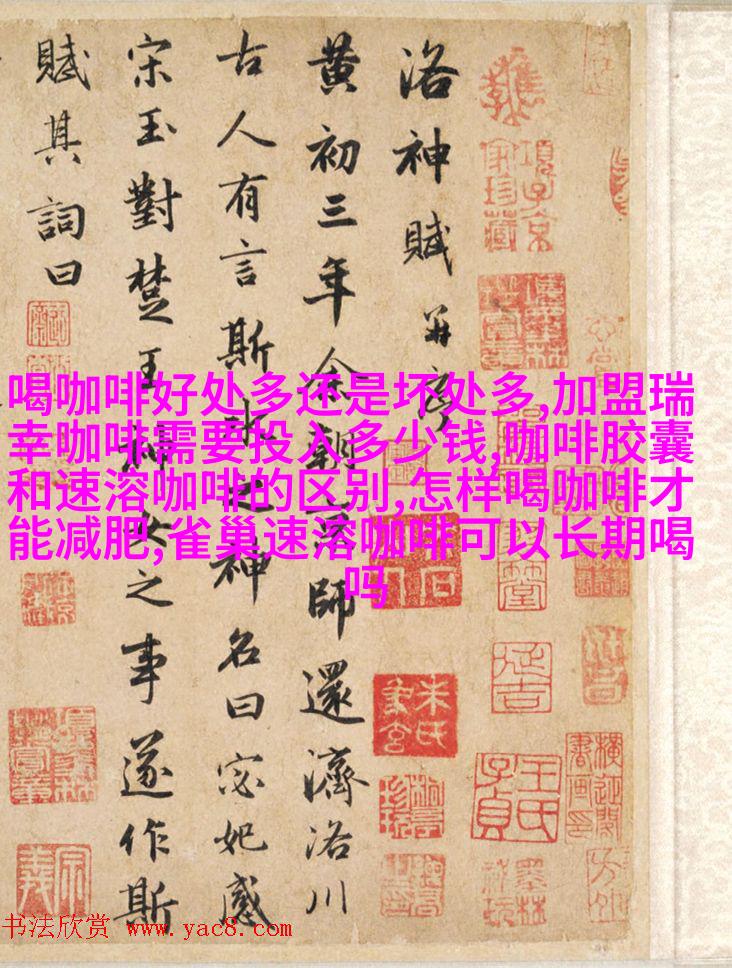 洛神賦并序
黄初三年余朝京師還濟洛川
古人有言斯水之神名曰宓妃感
宋玉對楚王神女之事遂作斯
賦其詞曰
喝咖啡好处多还是坏处多,加盟瑞
幸咖啡需要投入多少钱,咖啡胶囊
和速溶咖啡的区别,怎样喝咖啡才
能减肥,雀巢速溶咖啡可以长期喝
吗
項子京
家珍藏
书法欣赏 www.yac8.com